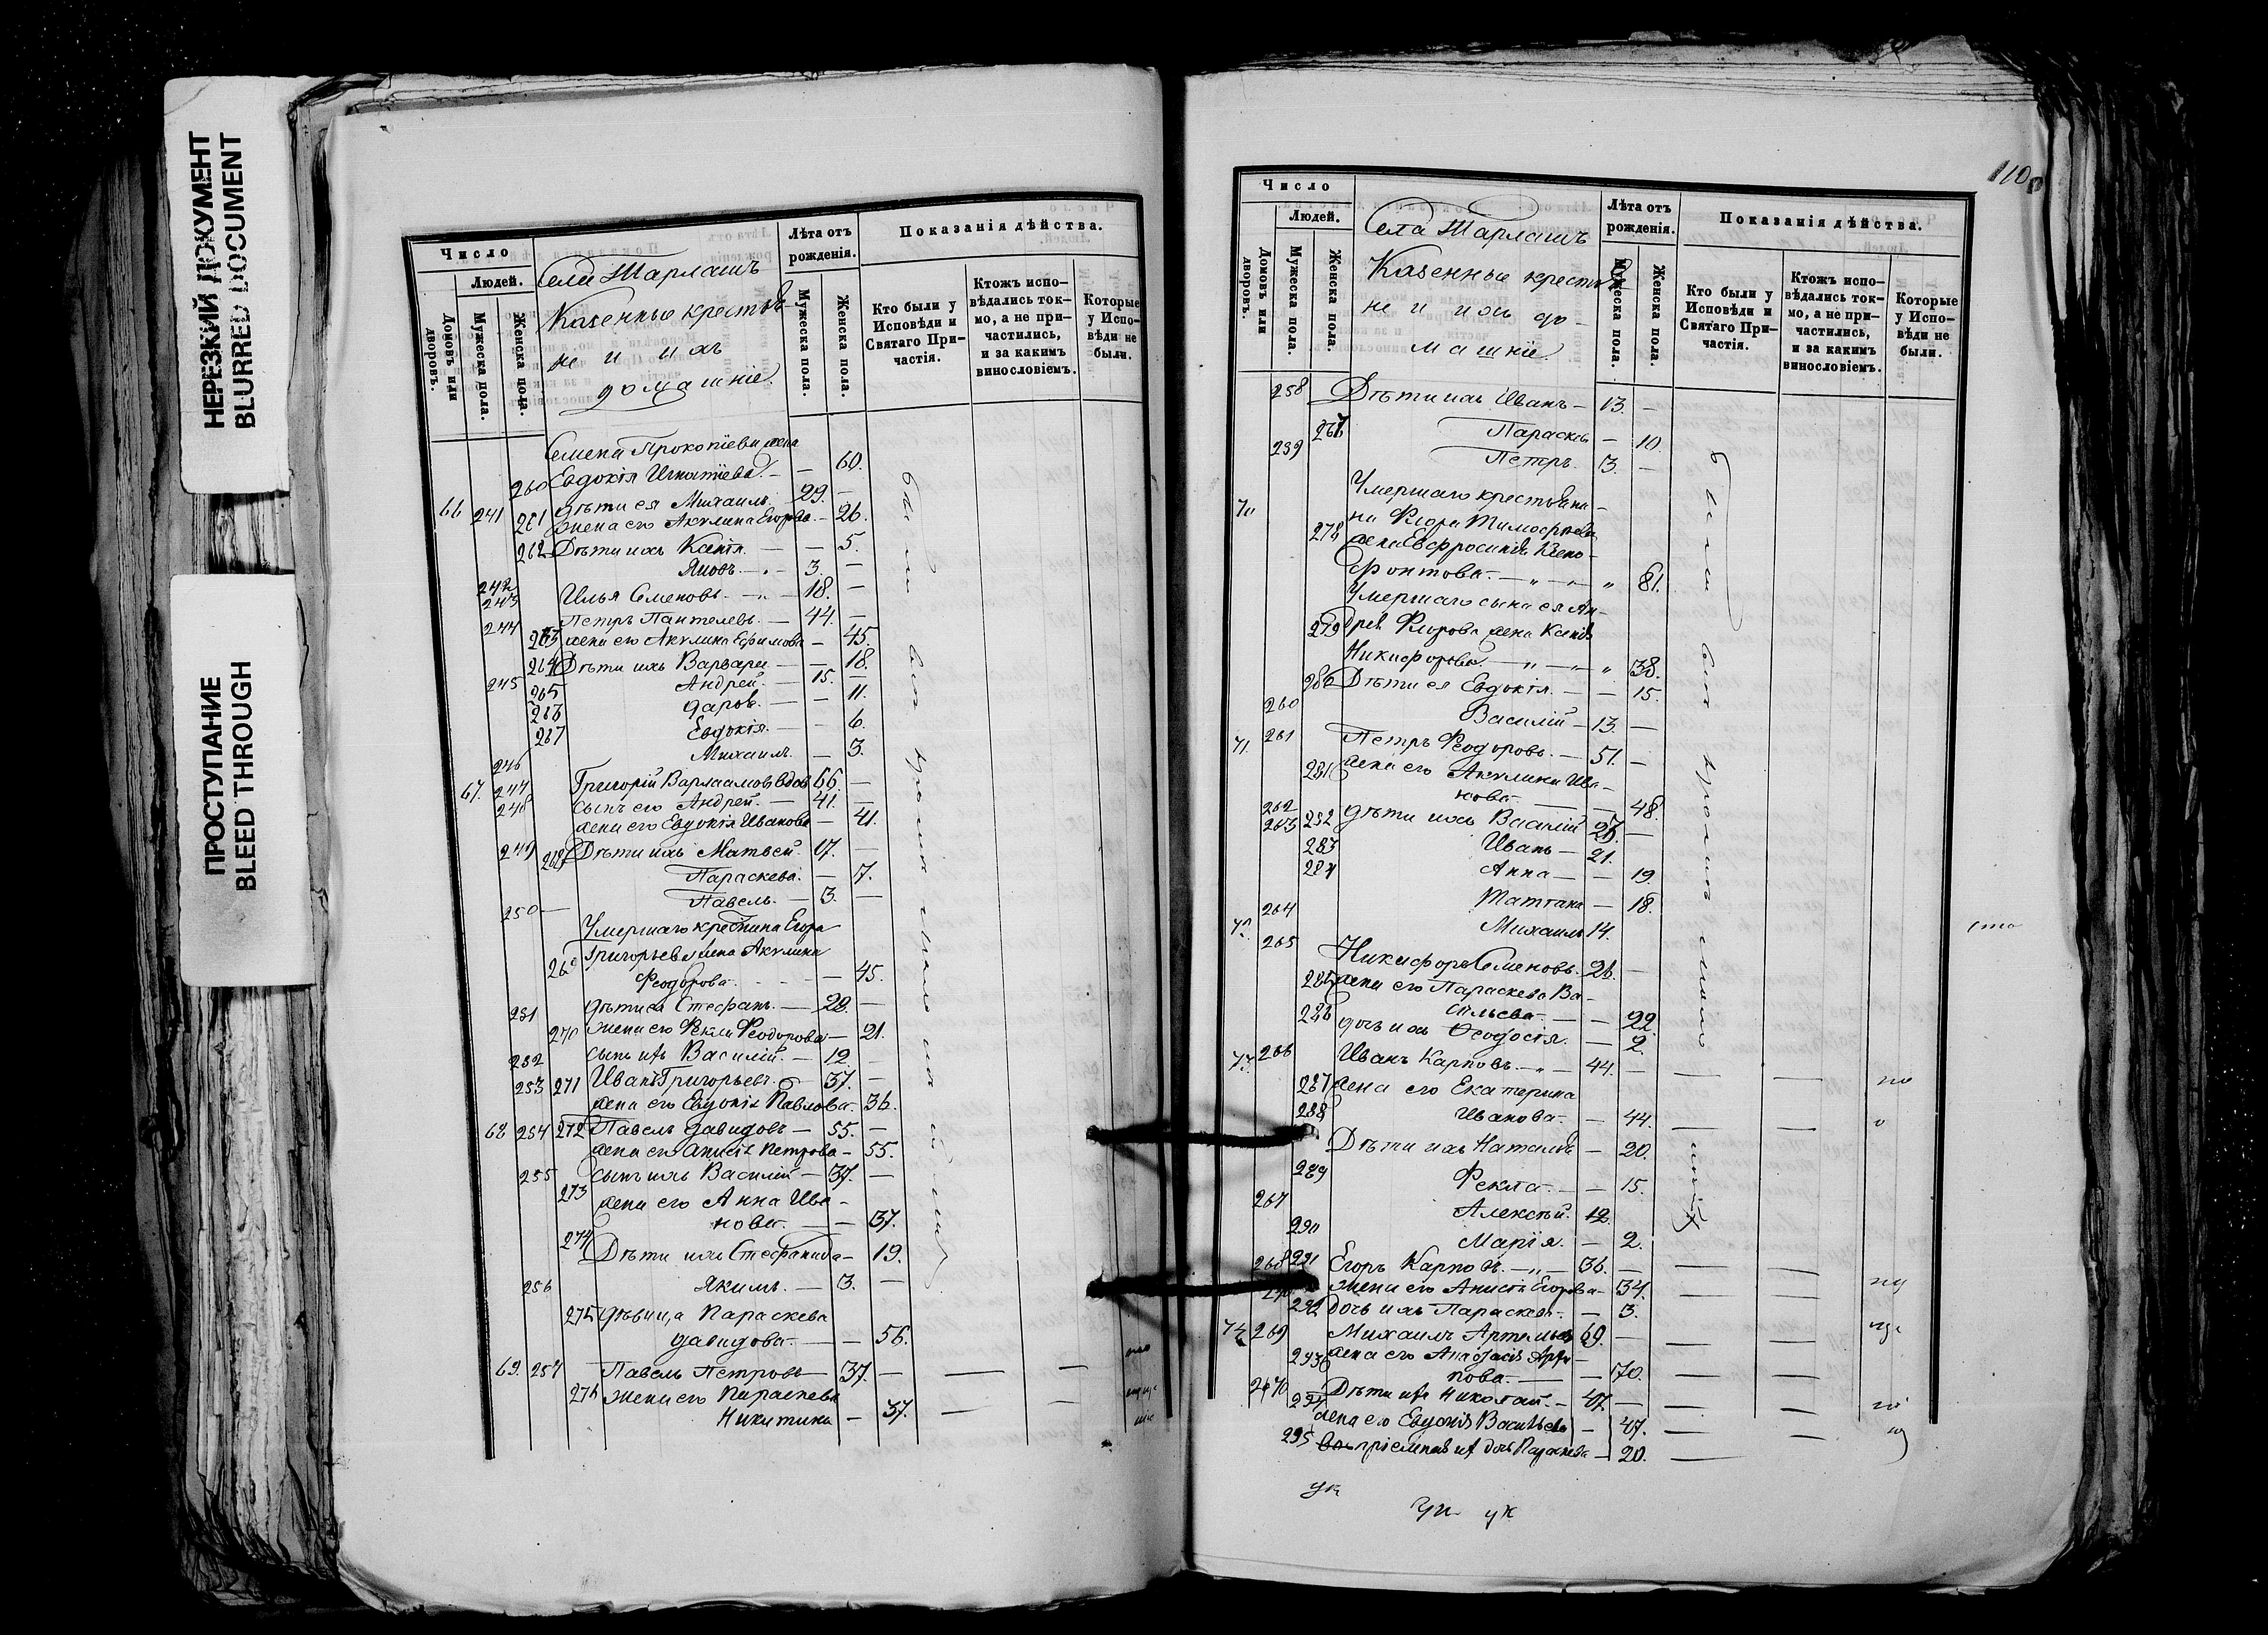 НЕРЕЗКИЙ ДОКУМЕНТ
BLURRED DOCUMENT
ПРОСТУПАНИЕ
BLEED THROUGH
Число
Людей.
Домовъ или дворовъ.
Мужеска пола.
Женска пола.
Села Шарлашъ
Казенные крестья-
не и ихъ
домашніе.
Лѣта отъ рожденія.
Мужеска пола.
Женска пола.
Показанія дѣйства.
Кто были у Исповѣди и Святаго При-частія.
Ктожъ испо-вѣдались ток-мо, а не при-частились, и за какимъ винословіемъ.
Которые у Испо-вѣди не были.
Семена Прокопіева жена
260 Евдокія Игнатіева. — 60.
66 241 дѣти ея Михаилъ. 29. —
261 жена его Акулина Егорова — 26.
262 Дѣти ихъ Ксенія — — 5.
242 Яковъ — 3. —
243 Илья Семеновъ — 18. —
244 Петръ Пантелевъ. — 44. —
263 жена его Акулина Ефимова — 45.
264 Дѣти ихъ Варвара — — 18.
245 Андрей. — 15. —
265 Дарья. — — 11.
267 Евдокія. — — 6.
246 Михаилъ. — 3.
67. Григорій Варлаамовъ вдовъ 66. —
248 Сынъ его Андрей. — 41. —
жена его Евдокія Иванова — 41.
249 Дѣти ихъ Матвей. 17. —
Параскева. — 7.
250 Павелъ. — 3. —
Умершаго крестьянина Егора
Григорьева жена Акулина
Феодорова. — 45.
дѣти ея Стефанъ. — 29. —
270 жена его Фекла Феодорова — 21.
252 Сынъ ихъ Василій. — 12 —
253 271 Иванъ Григорьевъ. 37. —
жена его Евдокія Павлова — 36.
68 254 272 Павелъ Давидовъ — 55. —
жена его Анисія Петрова — 55.
255 Сынъ ихъ Василій — 37. —
273 жена его Анна Ива-
нова. — — 37.
274 Дѣти ихъ Стефанида — 19.
256 Якимъ. — 3. —
275 дѣвица Параскева
Давидова. — — 56.
69. 257 Павелъ Петровъ — 37. — — —
276 жена его Параскева
Никитина — 37. — —
были вси кромѣ
110
Число
Людей.
Домовъ или дворовъ.
Мужеска пола.
Женска пола.
Села Шарлашъ
Казенные крестья-
не и ихъ до-
машніе
Лѣта отъ рожденія.
Мужеска пола.
Женска пола.
Показанія дѣйства.
Кто были у Исповѣди и Святаго При-частія.
Ктожъ испо-вѣдались ток-мо, а не при-частились, и за какимъ винословіемъ.
Которые у Испо-вѣди не были.
258 Дѣти ихъ Иванъ — 13. —
277 Параскева — 10.
259 Петръ. 3. —
70 Умершаго крестьяни-
на Флора Тимофѣева
278 жена Евфросинія Ксено-
фонтова. — 81.
Умершаго сына ея Ан-
279 дрея Флорова жена Ксенія
Никифорова. — 38.
280 Дѣти ея Евдокія. — — 15.
260 Василій — 13. —
71. 261 Петръ Феодоровъ. — 51. —
281 жена его Акулина Ива-
нова. — — 48.
262 282 дѣти ихъ Василій
263 283 Иванъ — 21.
284 Анна — — 19.
Татіана — 18.
264 Михаилъ 14.
72. 265 Никифоръ Семеновъ. 26. —
285 жена его Параскева Ва-
сильева. — — 22.
286 дочь ихъ Феодосія. — 2.
73. 266 Иванъ Карповъ. — 44. — — —
287 жена его Екатерина
Иванова. — 44. — —
288 Дѣти ихъ Наталія — 20.
289 Фекла. — — 15.
267 Алексѣй. 12.
290 Марія. — 2.
268 291 Егоръ Карповъ. — 36. — — —
жена его Анисія Егорова — 34. — —
292 дочь ихъ Параскева — 3.
74 269 Михаилъ Артемьевъ 69. — — —
293 жена его Анастасія Арте-
пова. — — 70. — —
270 Дѣти ихъ Николай. — 47. — — —
294 жена его Евдокія Васильева — 47. — —
295 пріемная ихъ дочь Параскева — 20. — —
были вси кромѣ